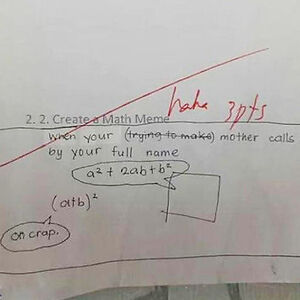 haha 3pts
2. 2. Create a Math Meme
when your (trying to make) mother calls
by your full name
a² + 2ab + b²
(a+b)²
oh crap.